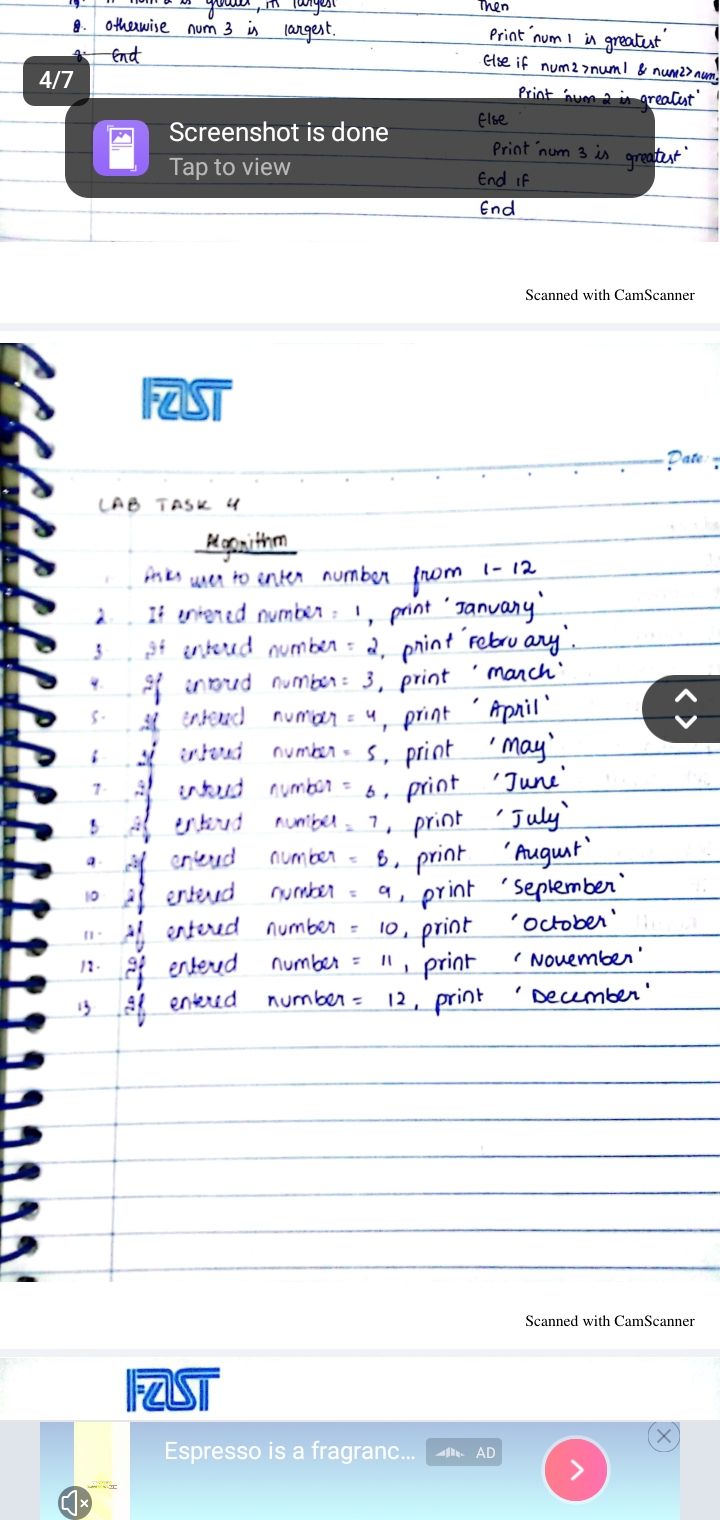 8. otherwise num 3 is largest.
9. End
Then
Print 'num 1 is greatest'
Else if num2>num1 & num2>num
Print 'num 2 is greatest'
Else
Print 'num 3 is greatest'
End if
End
4/7
Screenshot is done
Tap to view
Scanned with CamScanner
FAST
Date:
LAB TASK 4
Algorithm
1. Asks user to enter number from 1-12
2. If entered number = 1, print 'January'
3. If entered number = 2, print 'February'.
4. If entered number = 3, print 'march'
5. If entered number = 4, print 'April'
6. If entered number = 5, print 'May'
7. If entered number = 6, print 'June'
8. If entered number = 7, print 'July'
9. If entered number = 8, print 'August'
10. If entered number = 9, print 'September'
11. If entered number = 10, print 'October'
12. If entered number = 11, print 'November'
13. If entered number = 12, print 'December'
Scanned with CamScanner
FAST
Espresso is a fragranc...
AD